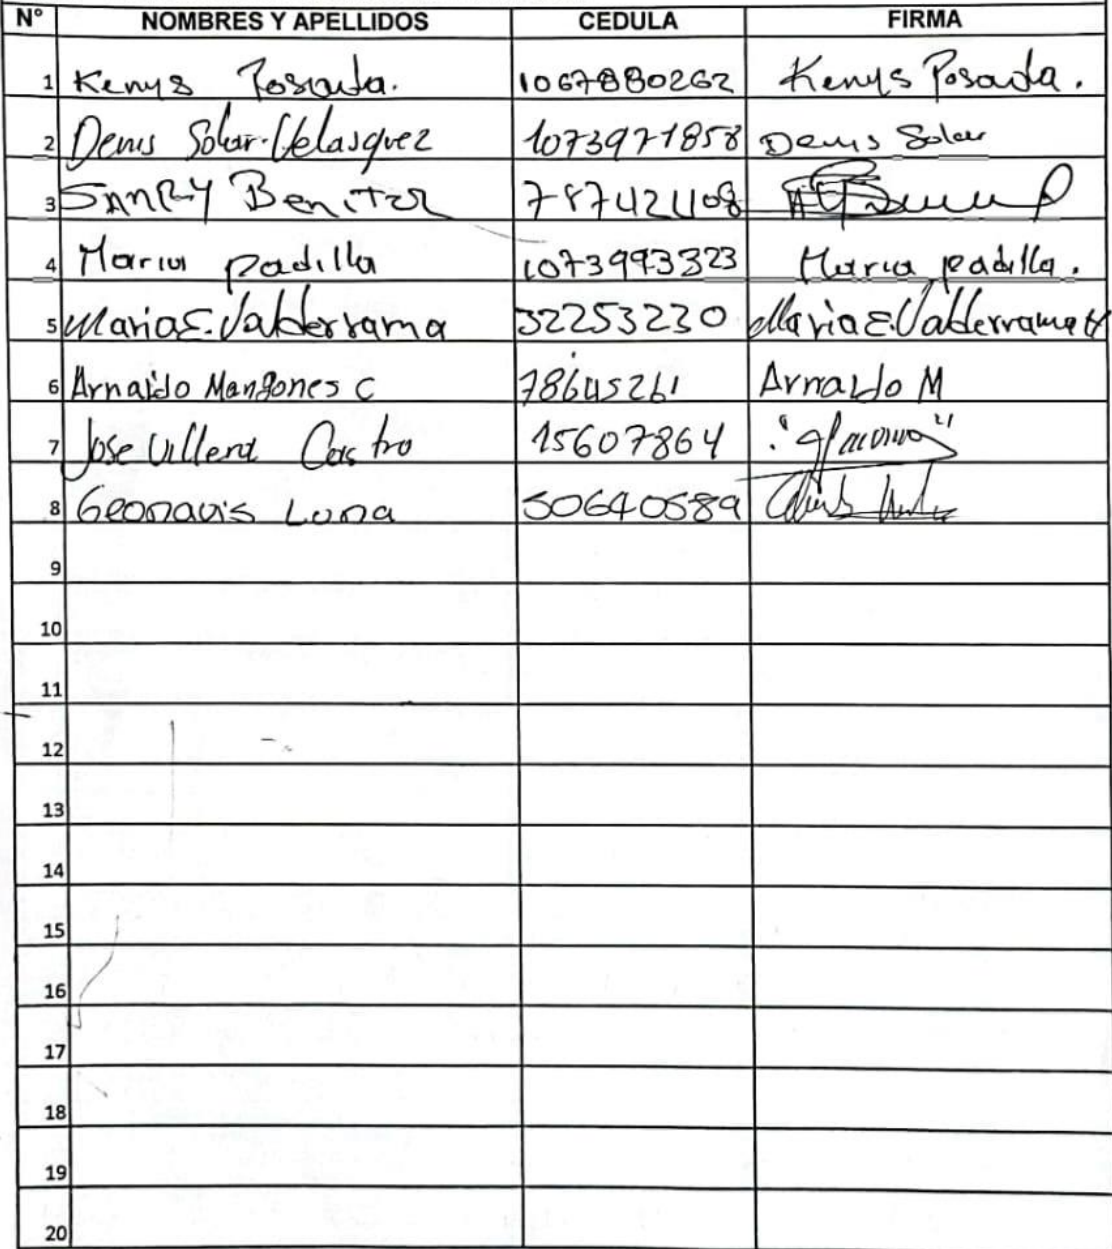 N° NOMBRES Y APELLIDOS CEDULA FIRMA
1 Kenys Posada. 1067880262 Kenys Posada.
2 Denis Solar Velasquez 1073971858 Denis Solar
3 SANRY Benitor
4 Maria padilla 1073993323 Maria padilla.
5 Maria E. Valderrama 32253230 Maria E. Valderrama H
6 Arnaldo Mangones C 78645261 Arnaldo M
7 Jose Villera Castro 15607864
8 Geonavis Luna 50640589
9
10
11
12
13
14
15
16
17
18
19
20